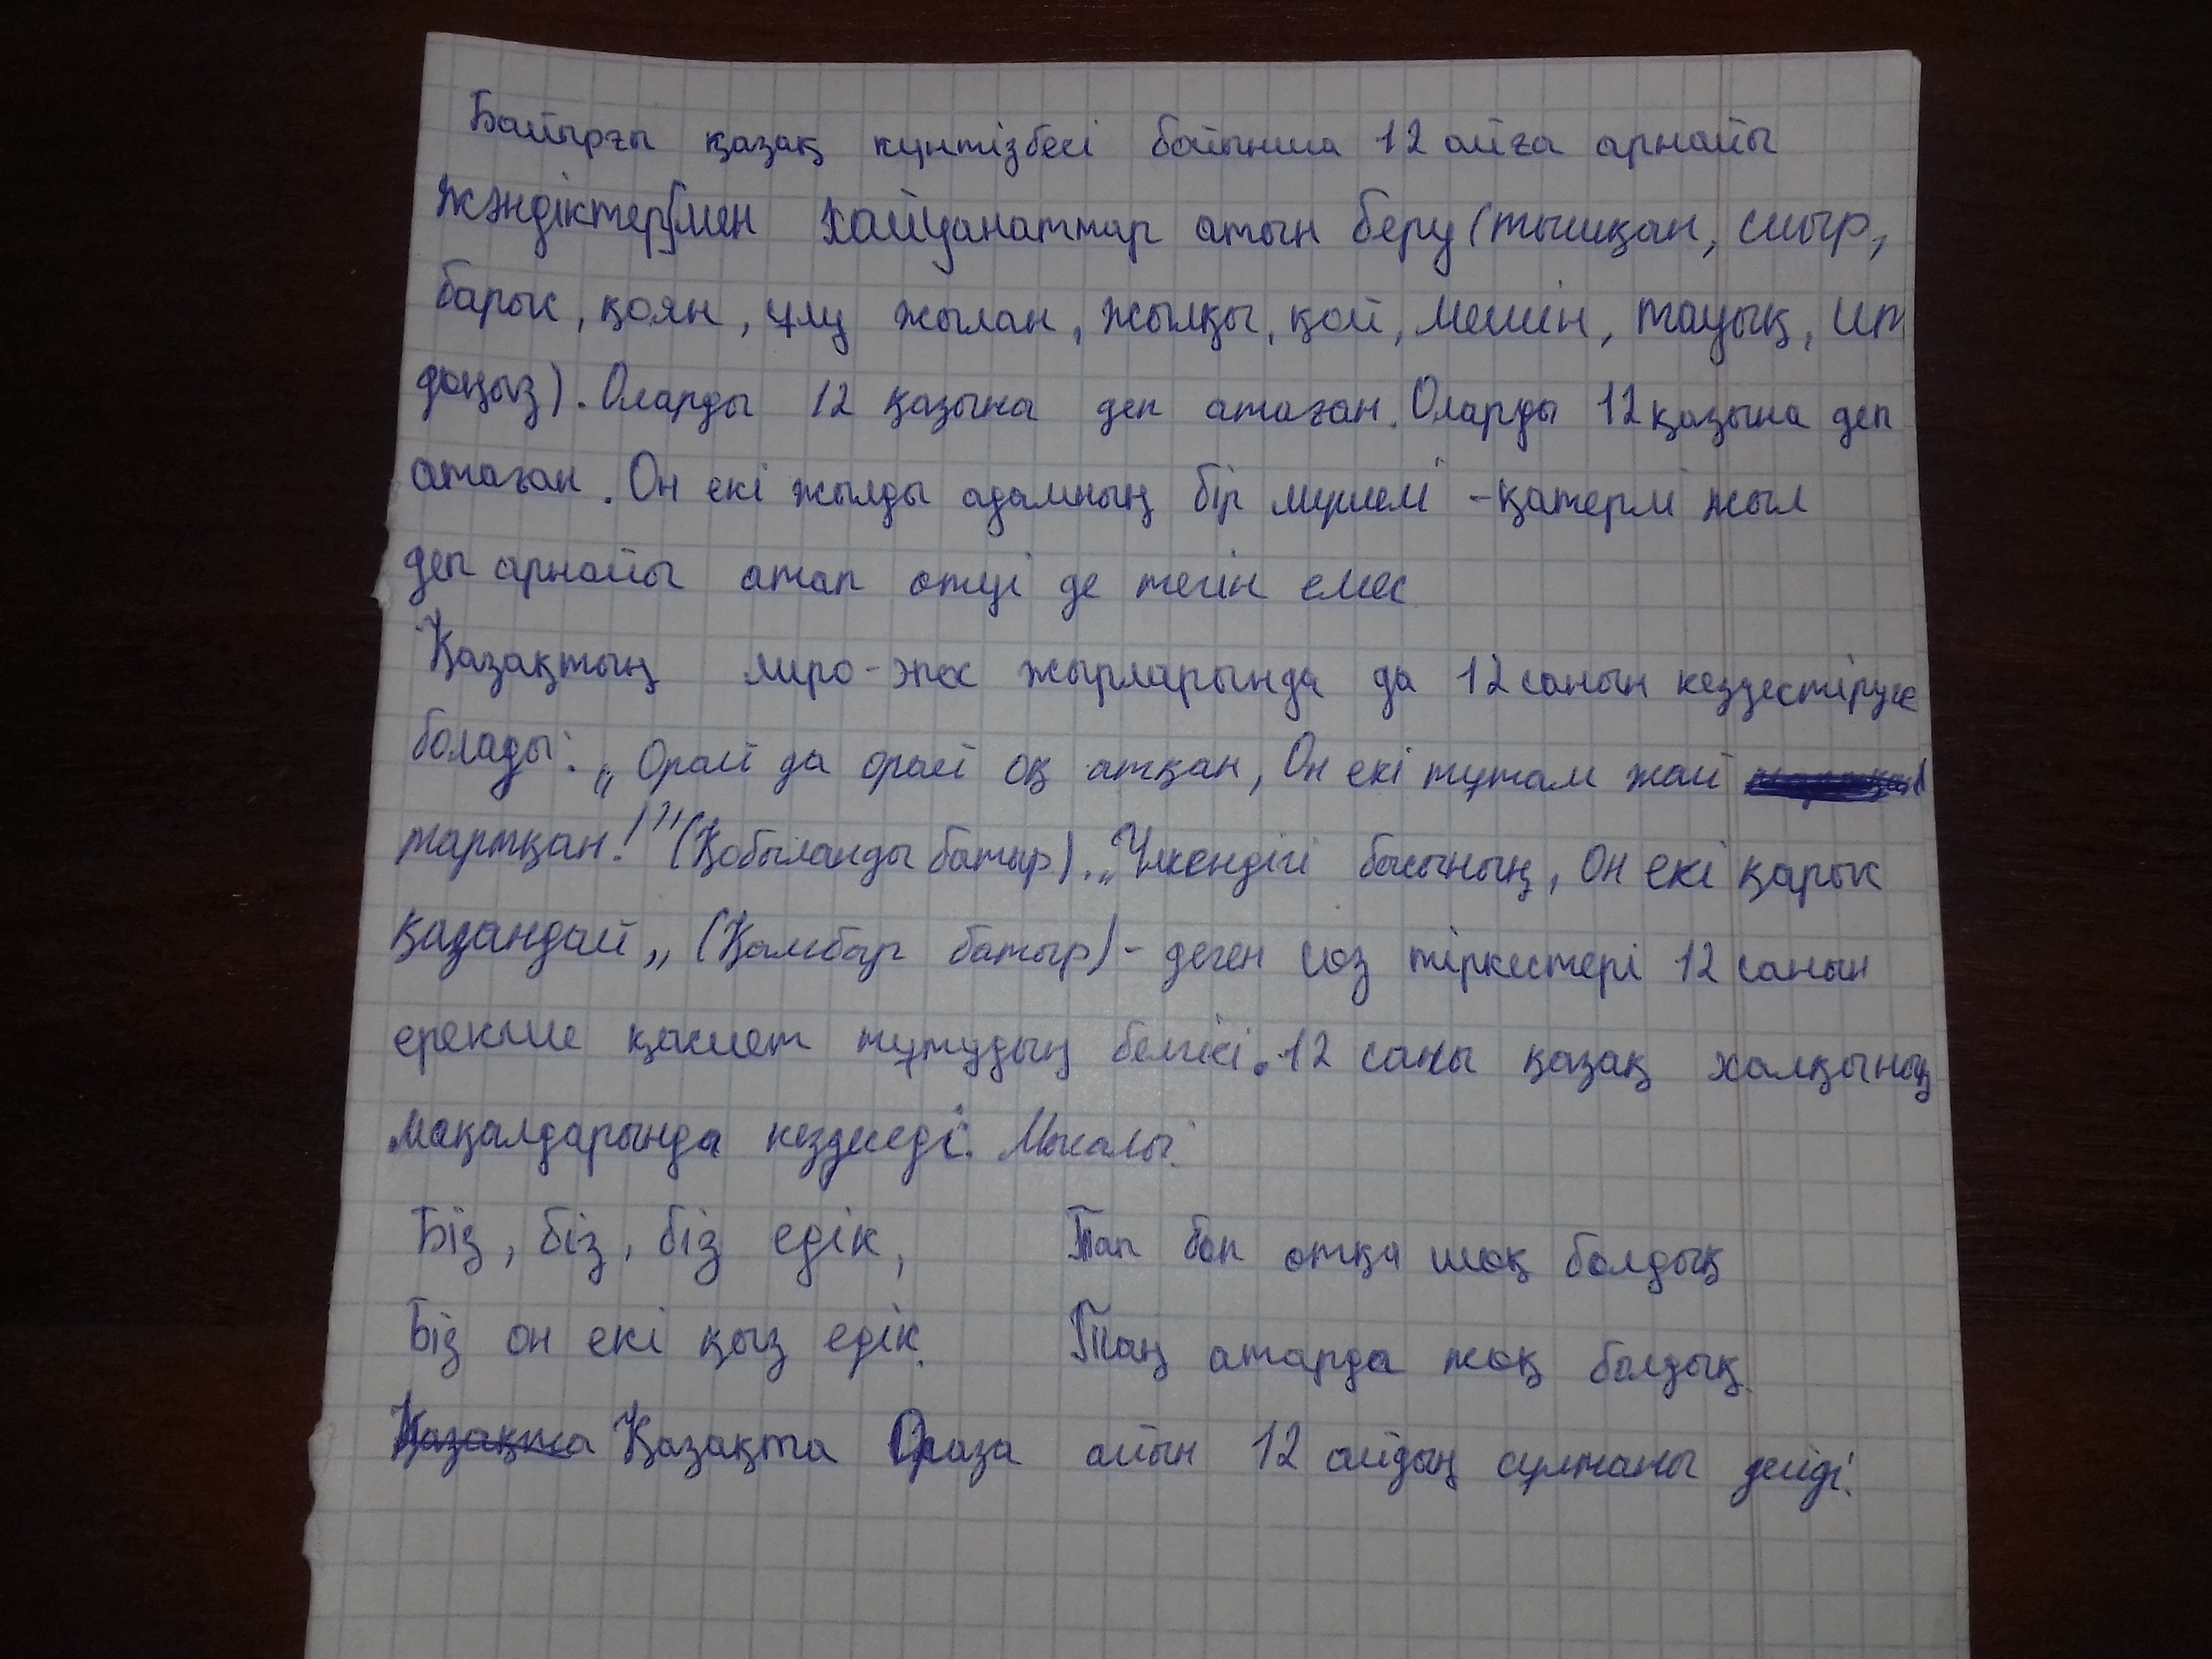 Байырғы қазақ күнтізбесі бойынша 12 айға арнайы
жәндіктер мен хайуанаттар атын беру (тышқан, сиыр,
барыс, қоян, ұлу жылан, жылқы, қой, мешін, тауық, ит
доңыз). Оларды 12 қазына деп атаған. Оларды 12 қазына деп
атаған. Он екі жылды адамның бір мүшелі - қатерлі жыл
деп арнайы атап өтуі де тегін емес
Қазақтың лиро-эпос жырларында да 12 санын кездестіруге
болады: „Орай да орай оқ атқан, Он екі тұтам жай
тартқан!" (Қобыланды батыр). „Үлкендігі басының, Он екі қарыс
қазандай„ (Қамбар батыр) - деген сөз тіркестері 12 санын
ерекше қасиет тұтудың белгісі. 12 саны қазақ халқының
мақалдарында кездеседі. Мысалы:
Біз, біз, біз едік, Топ боп отқа шоқ болдық
Біз он екі қыз едік. Таң атарда жоқ болдық.
Қазақта Қазақта Ораза айын 12 айдың сұлтаны дейді.